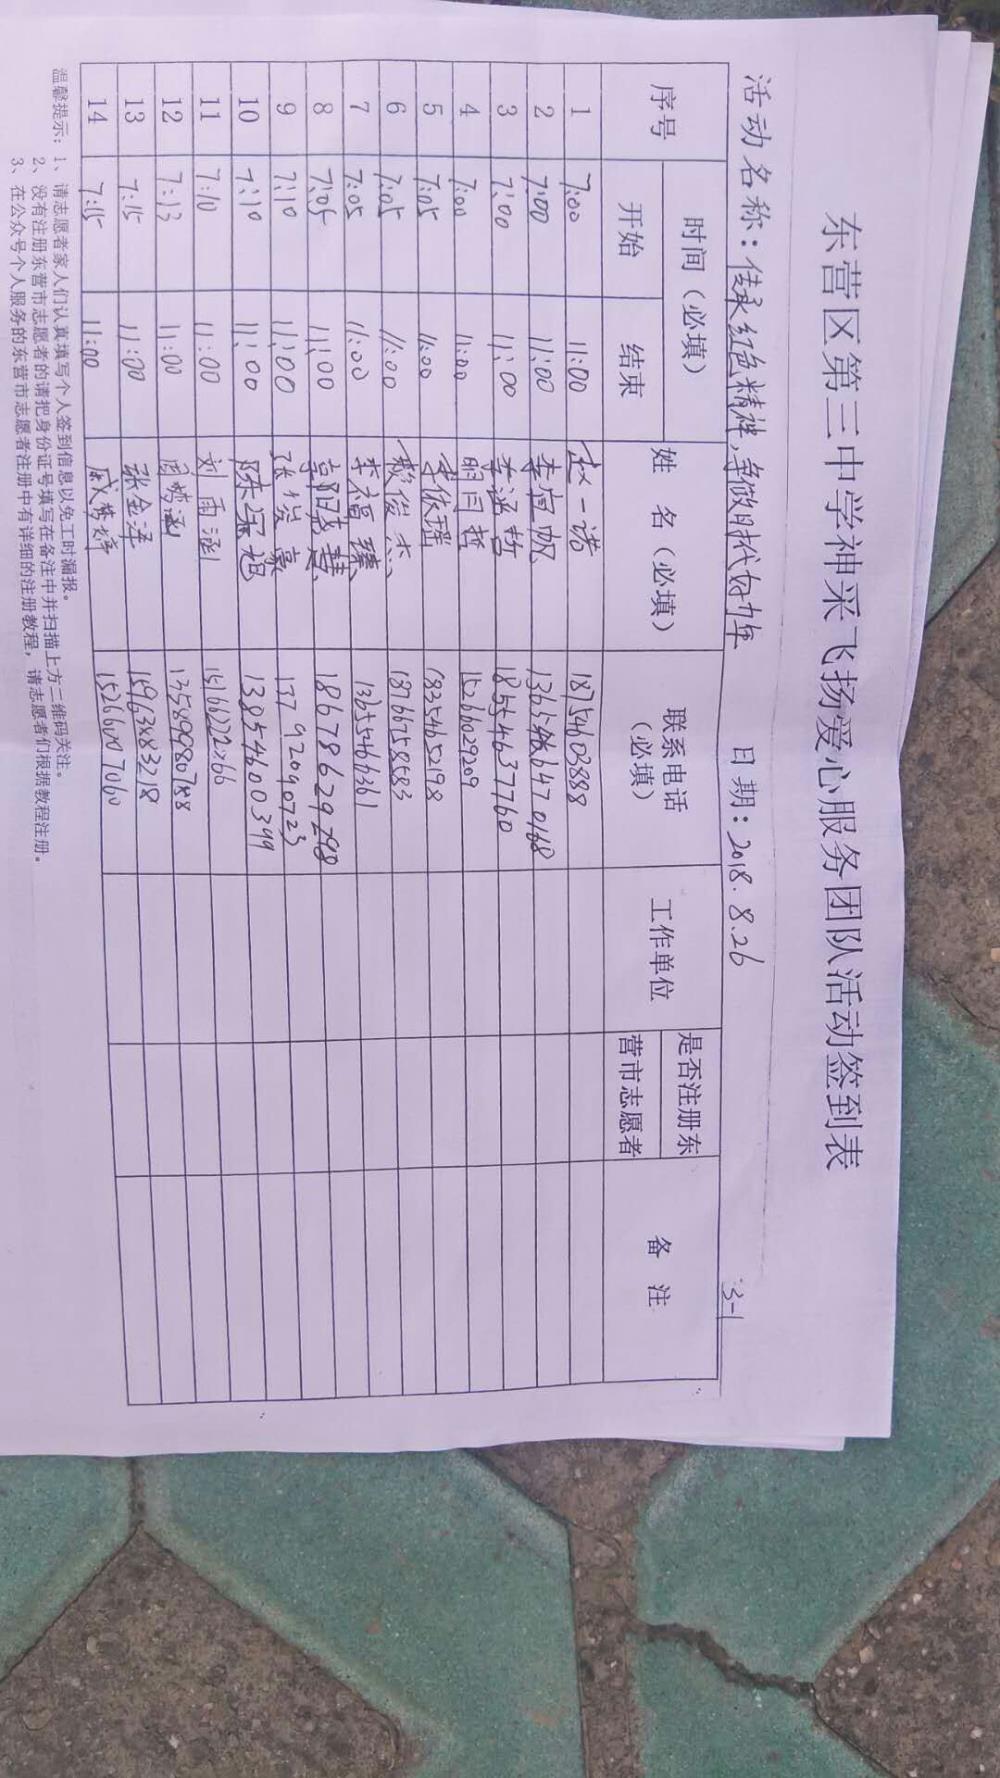 东营区第三中学神采飞扬爱心服务团队活动签到表
活动名称：传承红色精神，争做时代好少年 日期：2018.8.26
3-1
序号 时间（必填） 姓 名（必填） 联系电话（必填） 工作单位 是否注册东营市志愿者 备 注
开始 结束
1 7:00 11:00 赵一诺 18754603888
2 7:00 11:00 李恒帆
3 7:00 11:00 李涵哲 18554637760
4 7:00 11:00 明闫哲 15266029209
5 7:05 11:00 李依瑶 1835465298
6 7:05 11:00 俊杰 18766758583
7 7:05 11:00 李福臻 13655466361
8 7:05 11:00 郭慧 18678629298
9 7:10 11:00 张俊豪 13792090723
10 7:10 11:00 陈冠旭 13854600399
11 7:10 11:00 刘雨涵 15166222066
12 7:13 11:00 周鹤涵 13589980788
13 7:15 11:00 张金泽
14 7:15 11:00 成梦婷 15266007060
温馨提示：1、请志愿者家人们认真填写个人签到信息以免工时漏报。
2、没有注册东营市志愿者的请把身份证号填写在备注中并扫描上方二维码关注。
3、在公众号个人服务的东营市志愿者注册中有详细的注册教程，请志愿者们根据教程注册。